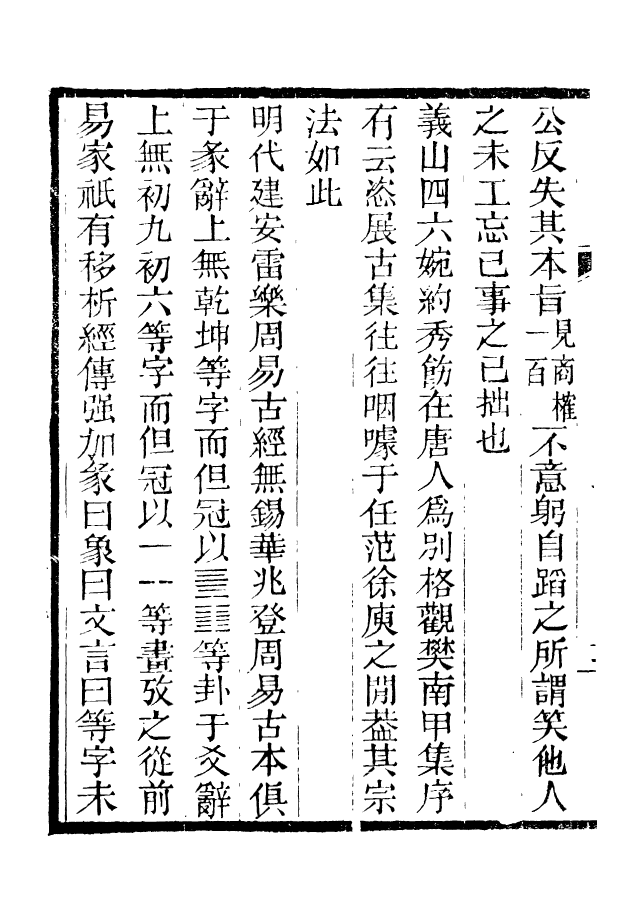 公反失其本旨見商榷一百一不意躬自蹈之所謂笑他人
之未工忘己事之已拙也
義山四六婉約秀飭在唐人爲別格觀樊南甲集序
有云恣展古集往往咽噱于任范徐庾之閒葢其宗
法如此
明代建安雷樂周易古經無錫華兆登周易古本俱
于彖辭上無乾坤等字而但冠以䷀䷁等卦于爻辭
上無初九初六等字而但冠以⚊⚋等畫攷之從前
易家祇有移析經傳强加彖曰象曰文言曰等字未